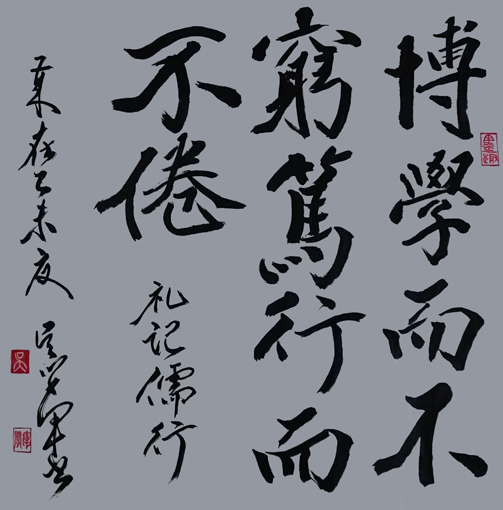 博學而不
窮篤行而
不倦
礼记儒行
乙未夏